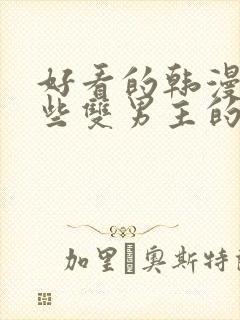 好看的韩漫
些雙男主的
加里 奥斯特